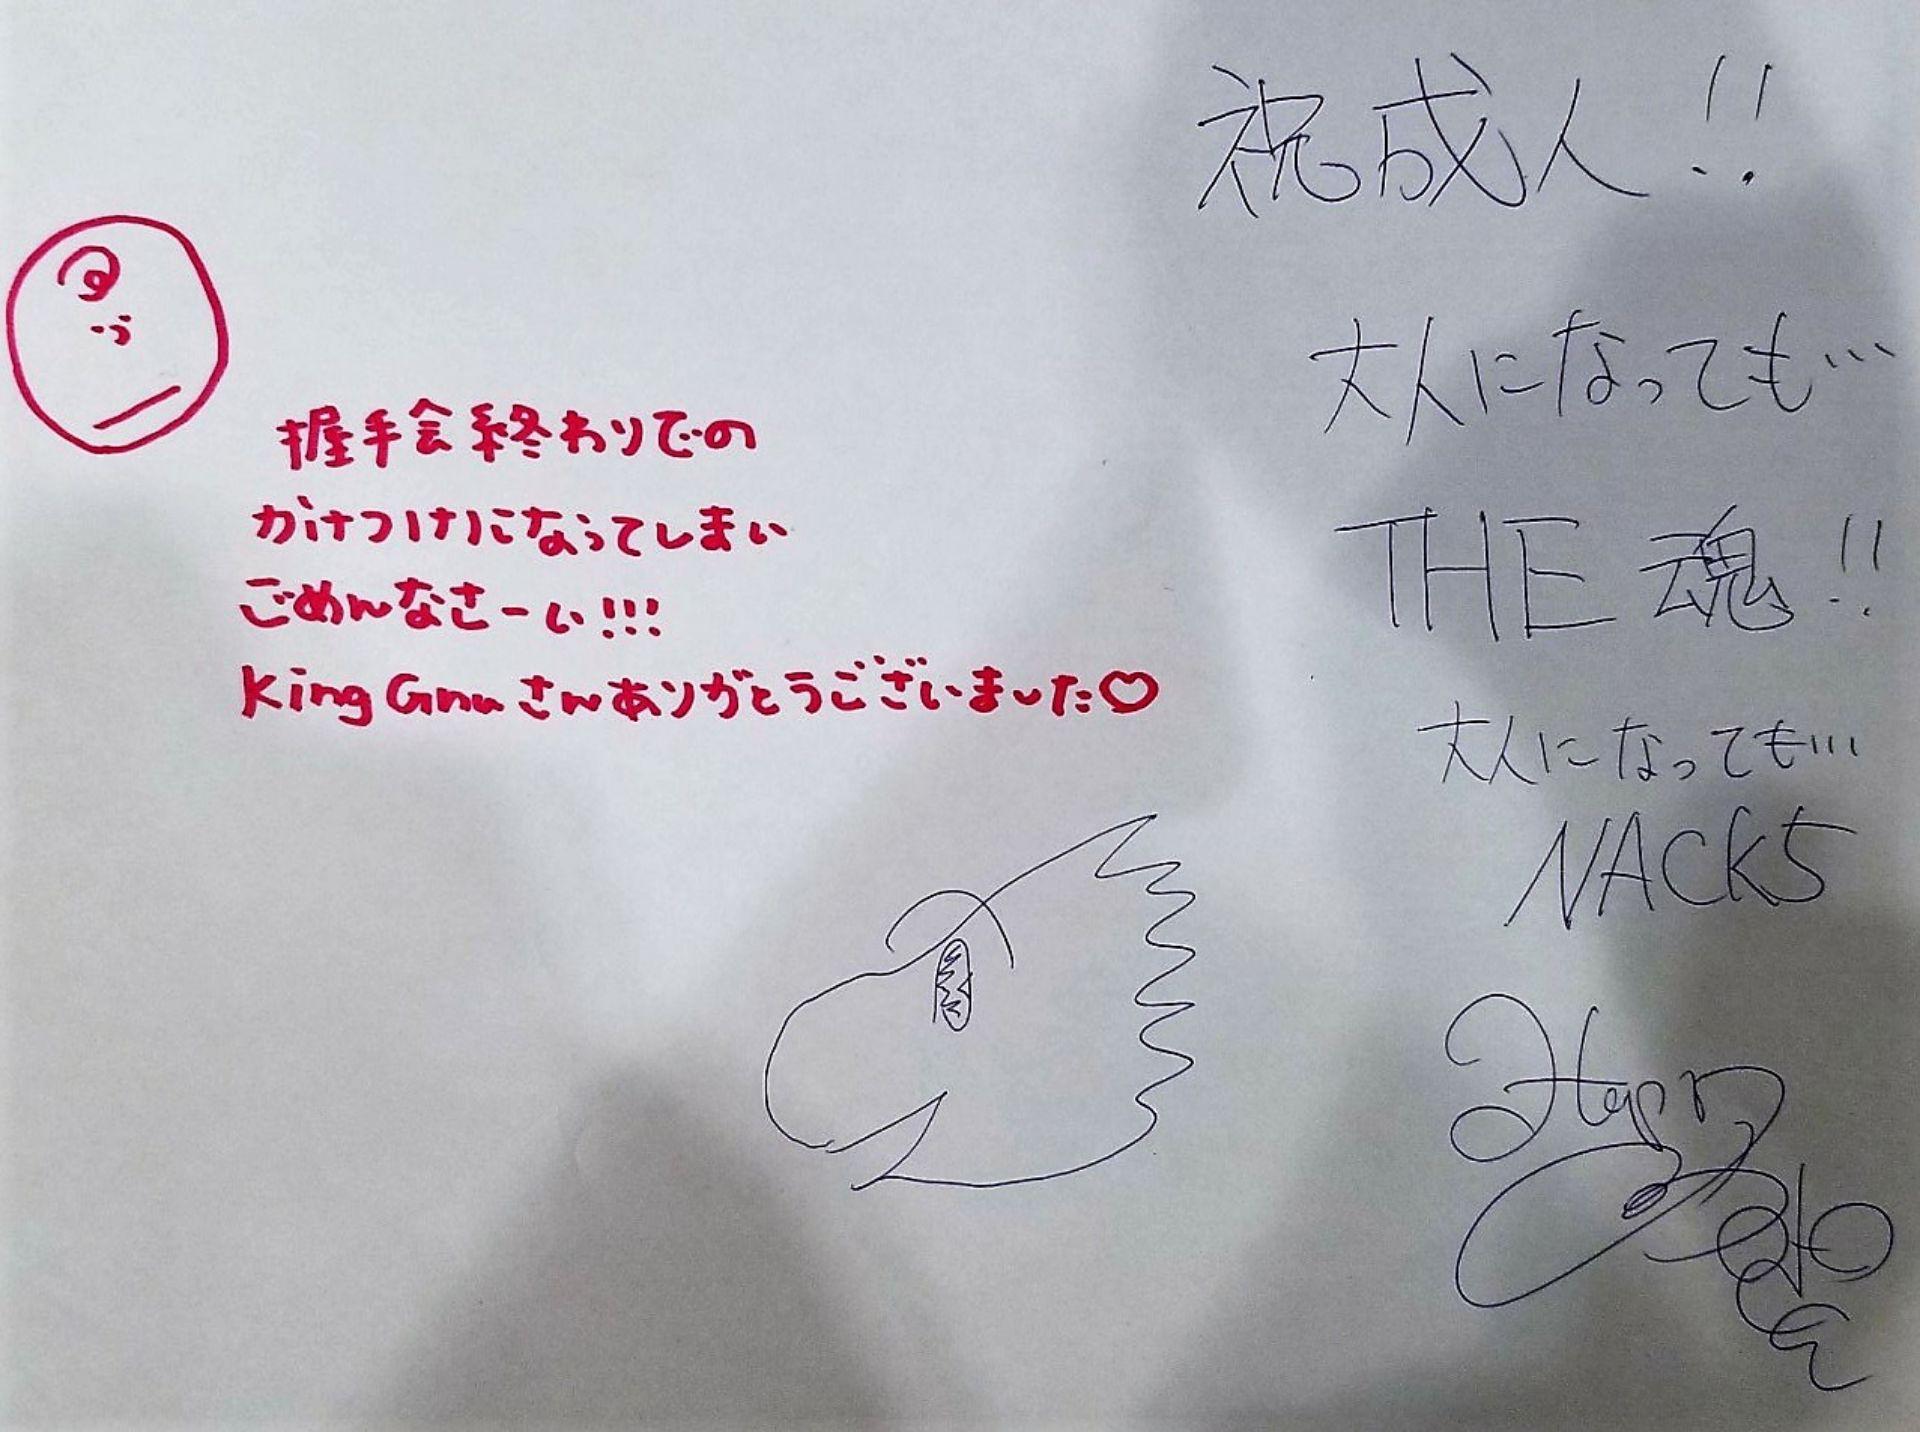 握手会終わりでの
かけつけになってしまい
ごめんなさーい!!!
King Gnuさんありがとうございました♡
祝成人!!
大人になっても…
THE 魂!!
大人になっても…
NACK5